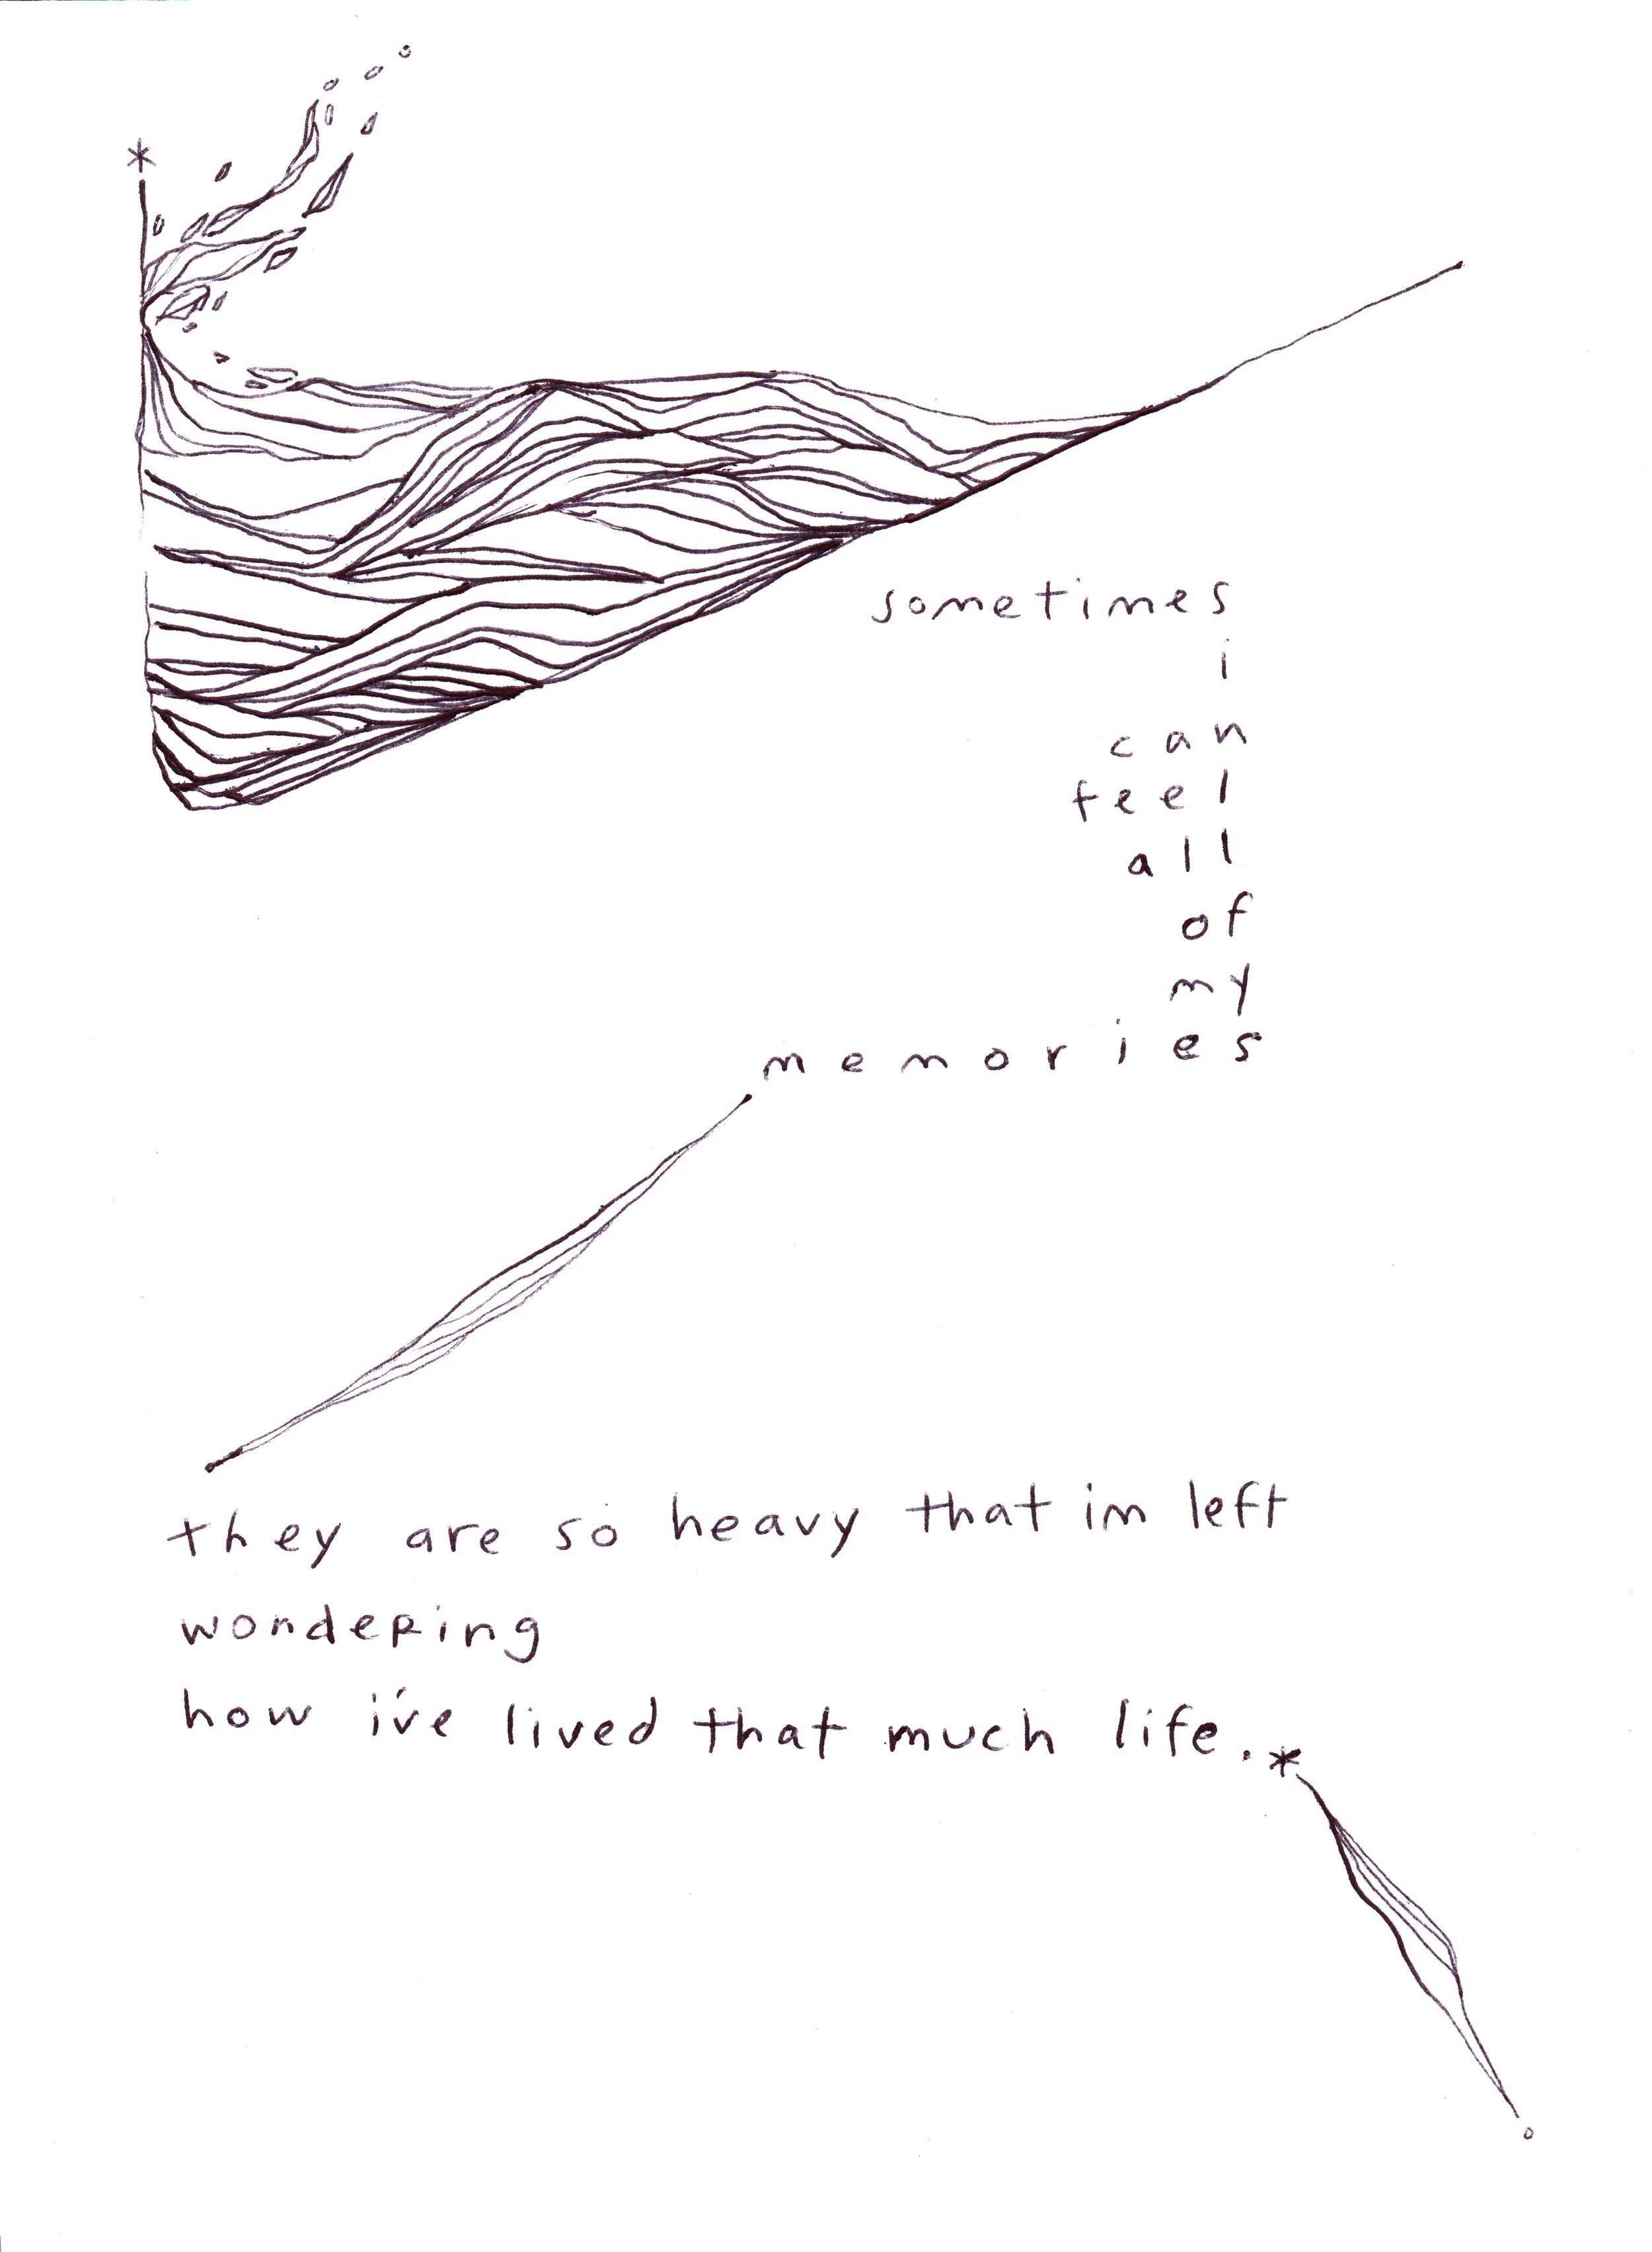 *
sometimes
i
can
feel
all
of
my
memories
they are so heavy that im left
wondeRing
how i've lived that much life.*